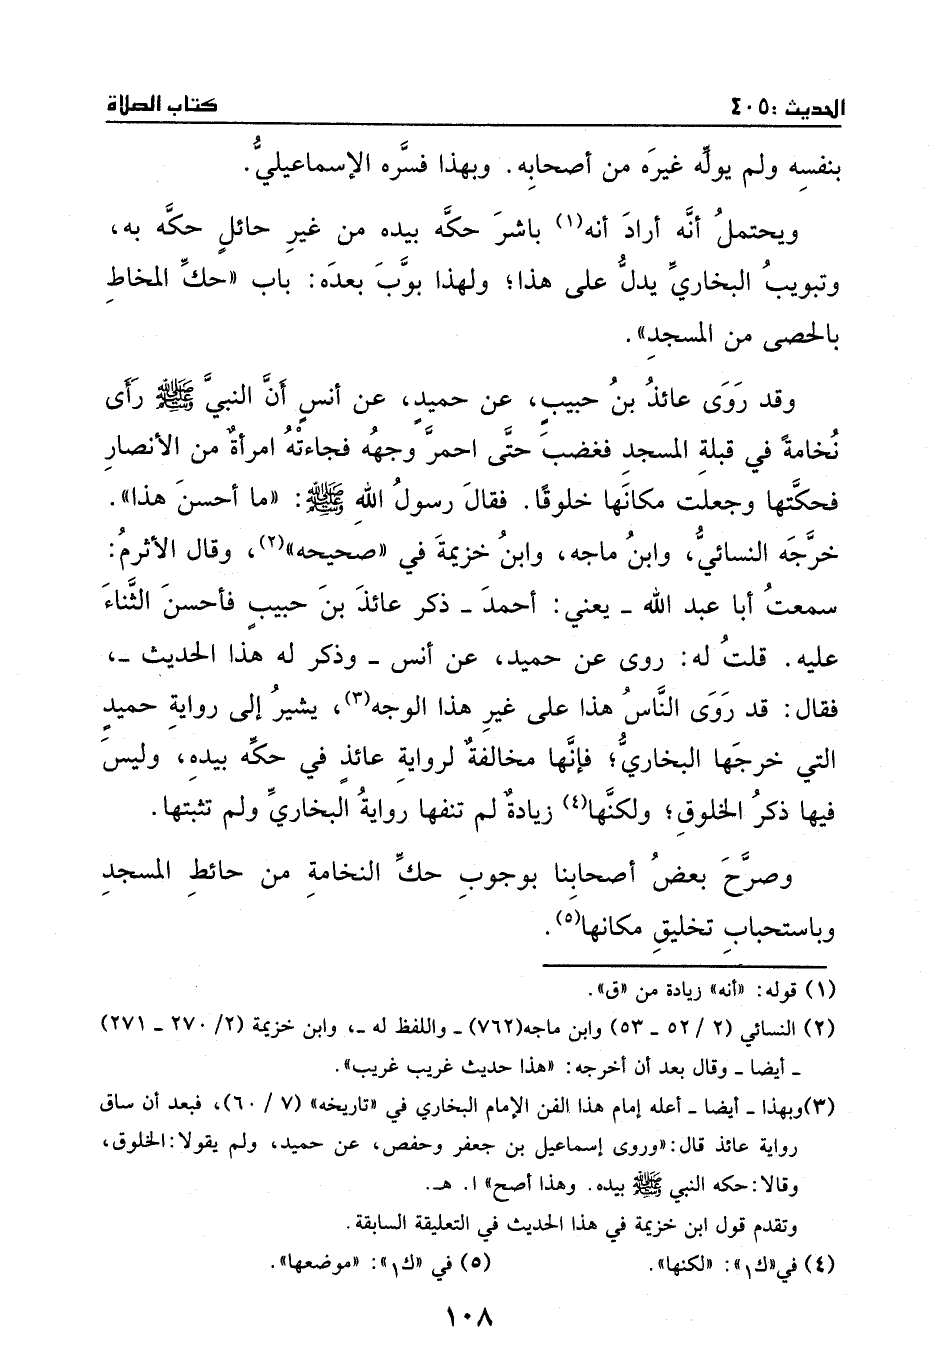 الحديث : ٤٠٥
كتاب الصلاة
بنفسِه ولم يولِّه غيرَه من أصحابِه. وبهذا فسَّره الإسماعيليُّ.
ويحتملُ أنَّه أرادَ أنه(١) باشرَ حكَّه بيده من غيرِ حائلٍ حكَّه به،
وتبويبُ البخاريِّ يدلُّ على هذا؛ ولهذا بوَّبَ بعدَه: باب «حكِّ المخاطِ
بالحصى من المسجدِ».
وقد رَوَى عائذُ بنُ حبيبٍ، عن حميدٍ، عن أنسٍ أَنَّ النبيَّ ﷺ رَأَى
نُخامةً في قبلةِ المسجدِ فغضبَ حتَّى احمرَّ وجهُه فجاءتْهُ امرأةٌ من الأنصارِ
فحكَّتها وجعلت مكانَها خلوقًا. فقالَ رسولُ اللهِ ﷺ: «ما أحسنَ هذا».
خرَّجَه النسائيُّ، وابنُ ماجه، وابنُ خزيمةَ في «صحيحه»(٢)، وقال الأثرمُ:
سمعتُ أبا عبد الله ـ يعني: أحمدَ ـ ذكر عائذَ بنَ حبيبٍ فأحسنَ الثَّناءَ
عليه. قلتُ له: روى عن حميد، عن أنس ـ وذكر له هذا الحديث ـ،
فقال: قد رَوَى النَّاسُ هذا على غيرِ هذا الوجهِ(٣)، يشيرُ إلى روايةِ حميدٍ
التي خرجَها البخاريُّ؛ فإنَّها مخالفةٌ لروايةِ عائذٍ في حكِّه بيدِه، وليسَ
فيها ذكرُ الخلوقِ؛ ولكنَّها(٤) زيادةٌ لم تنفها روايةُ البخاريِّ ولم تثبتها.
وصرَّحَ بعضُ أصحابِنا بوجوبِ حكِّ النخامةِ من حائطِ المسجدِ
وباستحبابِ تخليقِ مكانها(٥).
(١) قوله: «أنه» زيادة من «ق».
(٢) النسائي (٢ / ٥٢ ـ ٥٣) وابن ماجه(٧٦٢) ـ واللفظ له ـ، وابن خزيمة (٢/ ٢٧٠ ـ ٢٧١)
ـ أيضا ـ وقال بعد أن أخرجه: «هذا حديث غريب غريب».
(٣)وبهذا ـ أيضا ـ أعله إمام هذا الفن الإمام البخاري في «تاريخه» (٧ / ٦٠)، فبعد أن ساق
رواية عائذ قال: «وروى إسماعيل بن جعفر وحفص، عن حميد، ولم يقولا: الخلوق،
وقالا: حكه النبي ﷺ بيده. وهذا أصح» ا. هـ.
وتقدم قول ابن خزيمة في هذا الحديث في التعليقة السابقة.
(٤) في«ك١»: «لكنها».
(٥) في «ك١»: «موضعها».
١٠٨